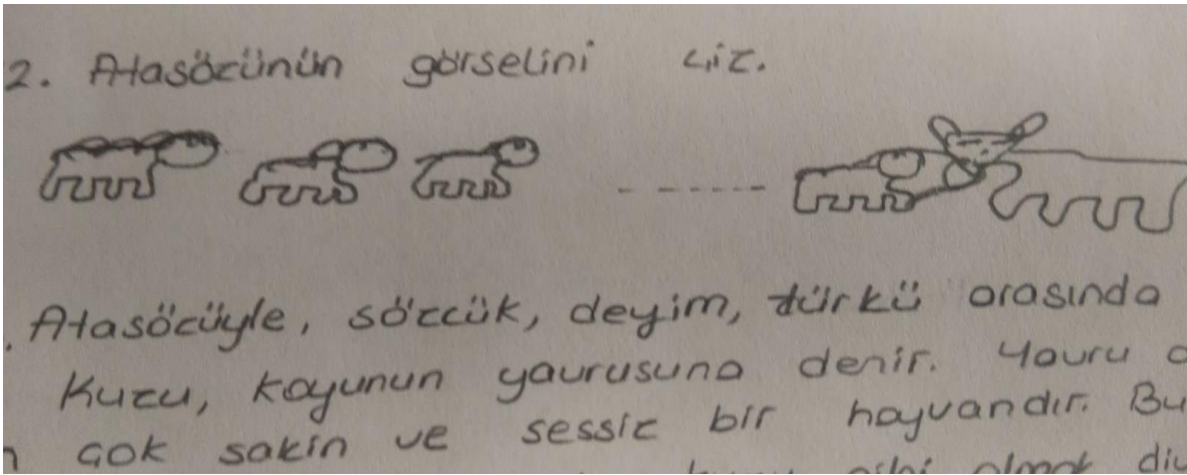 2. Atasözünün görselini çiz.
. Atasözüyle, sözcük, deyim, türkü arasında
Kuzu, koyunun yavrusuna denir. Yavru
çok sakin ve sessiz bir hayvandır. Bu
gibi olmak